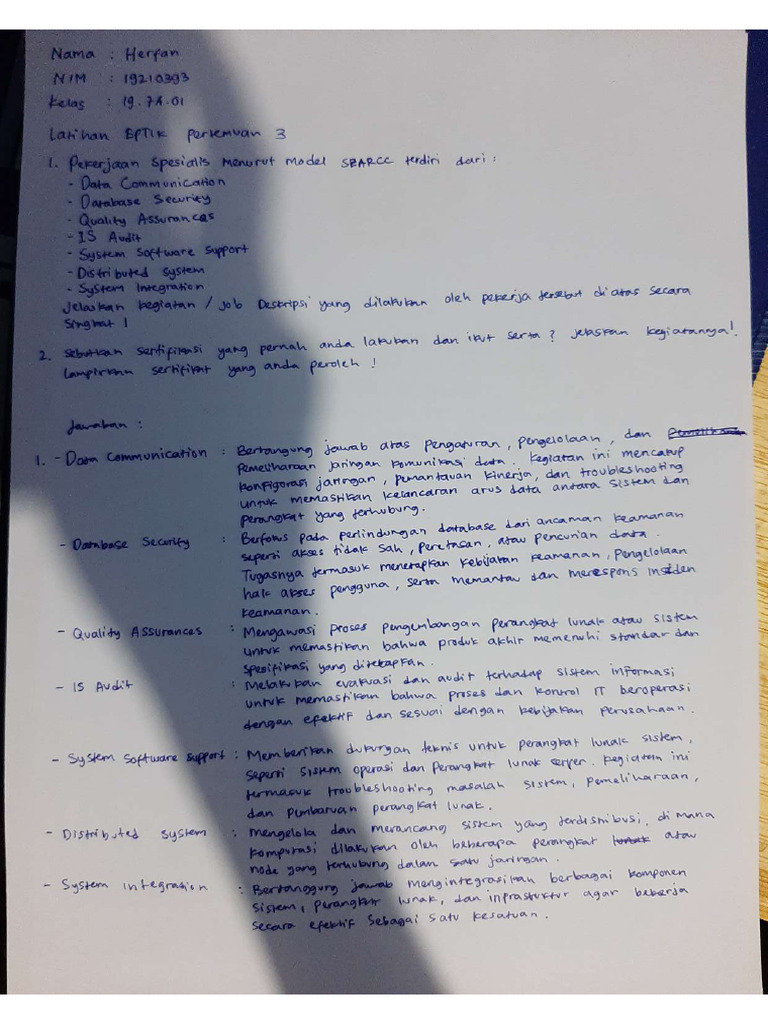 Nama : Herfan
NIM : 19210393
Kelas : 19.7A.01
Latihan EPTIK pertemuan 3
1. Pekerjaan Spesialis Menurut Model SEARCC terdiri dari :
- Data Communication
- Database Security
- Quality Assurances
- IS Audit
- System Software Support
- Distributed System
- System Integration
Jelaskan kegiatan / job Deskripsi yang dilakukan oleh pekerja tersebut di atas secara
singkat !
2. Sebutkan Sertifikasi yang pernah anda lakukan dan ikut serta ? Jelaskan kegiatannya !
Lampirkan sertifikat yang anda peroleh !
Jawaban :
1. - Data Communication : Bertangung jawab atas pengaturan, pengelolaan, dan
pemeliharaan jaringan komunikasi data. Kegiatan ini mencakup
konfigurasi jaringan, pemantauan kinerja, dan troubleshooting
untuk memastikan kelancaran arus data antara sistem dan
perangkat yang terhubung.
- Database Security : Berfokus pada perlindungan database dari ancaman keamanan
seperti akses tidak sah, peretasan, atau pencurian data.
Tugasnya termasuk menetapkan kebijakan keamanan, pengelolaan
hak akses pengguna, serta memantau dan merespons insiden
keamanan.
- Quality Assurances : Mengawasi proses pengembangan perangkat lunak atau sistem
untuk memastikan bahwa produk akhir memenuhi standar dan
spesifikasi yang ditetapkan.
- IS Audit : Melakukan evakuasi dan audit terhadap sistem informasi
untuk memastikan bahwa proses dan kontrol IT beroperasi
dengan efektif dan sesuai dengan kebijakan perusahaan.
- System Software Support : Memberikan dukungan teknis untuk perangkat lunak sistem,
seperti sistem operasi dan perangkat lunak server. Kegiatan ini
termasuk troubleshooting masalah sistem, pemeliharaan,
dan pembaruan perangkat lunak.
- Distributed System : Mengelola dan merancang sistem yang terdistribusi, di mana
komputasi dilakukan oleh beberapa perangkat atau
node yang terhubung dalam satu jaringan.
- System Integration : Bertanggung jawab mengintegrasikan berbagai komponen
sistem, perangkat lunak, dan infrastruktur agar bekerja
secara efektif sebagai satu kesatuan.